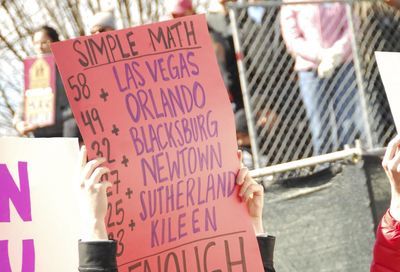 SIMPLE MATH
58 + LAS VEGAS
49 + ORLANDO
32 + BLACKSBURG
27 + NEWTOWN
25 + SUTHERLAND
KILEEN
ENOUGH
N